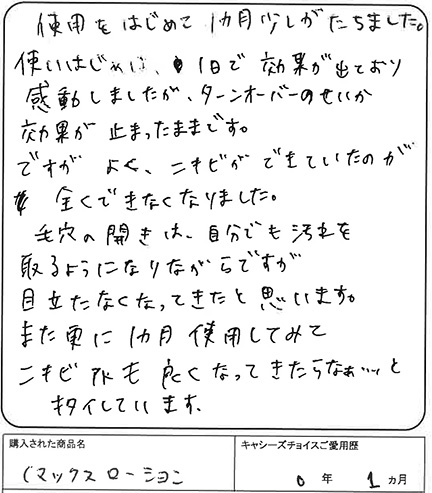 使用をはじめて 1カ月少しがたちました。
使いはじめは、1日で 効果が出ており
感動しましたが、ターンオーバーのせいか
効果が 止まったままです。
ですが よく、ニキビが できていたのが
全くできなくなりました。
毛穴の開きは、自分でも汚れを
取るようになりながらですが
目立たなくなってきたと思います。
また更に 1カ月 使用してみて
ニキビ跡も 良くなってきたらなぁ…と
キタイしています。
購入された商品名 キャシーズチョイスご愛用歴
Cマックスローション 0年 1カ月